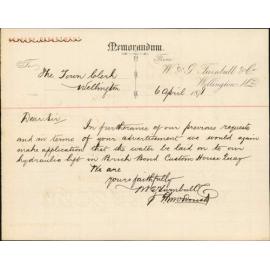 Memorandum.
To
From
The Town Clerk
W. & G. Turnbull & Co
Wellington
Wellington, N.Z.
6 April 18
Dear Sir
In furtherance of our previous requests
and in terms of your advertisement we would again
make application that the water be laid on to our
hydraulic lift in Brick Bond Custom House Quay
We are
yours faithfully
W & G Turnbull & Co